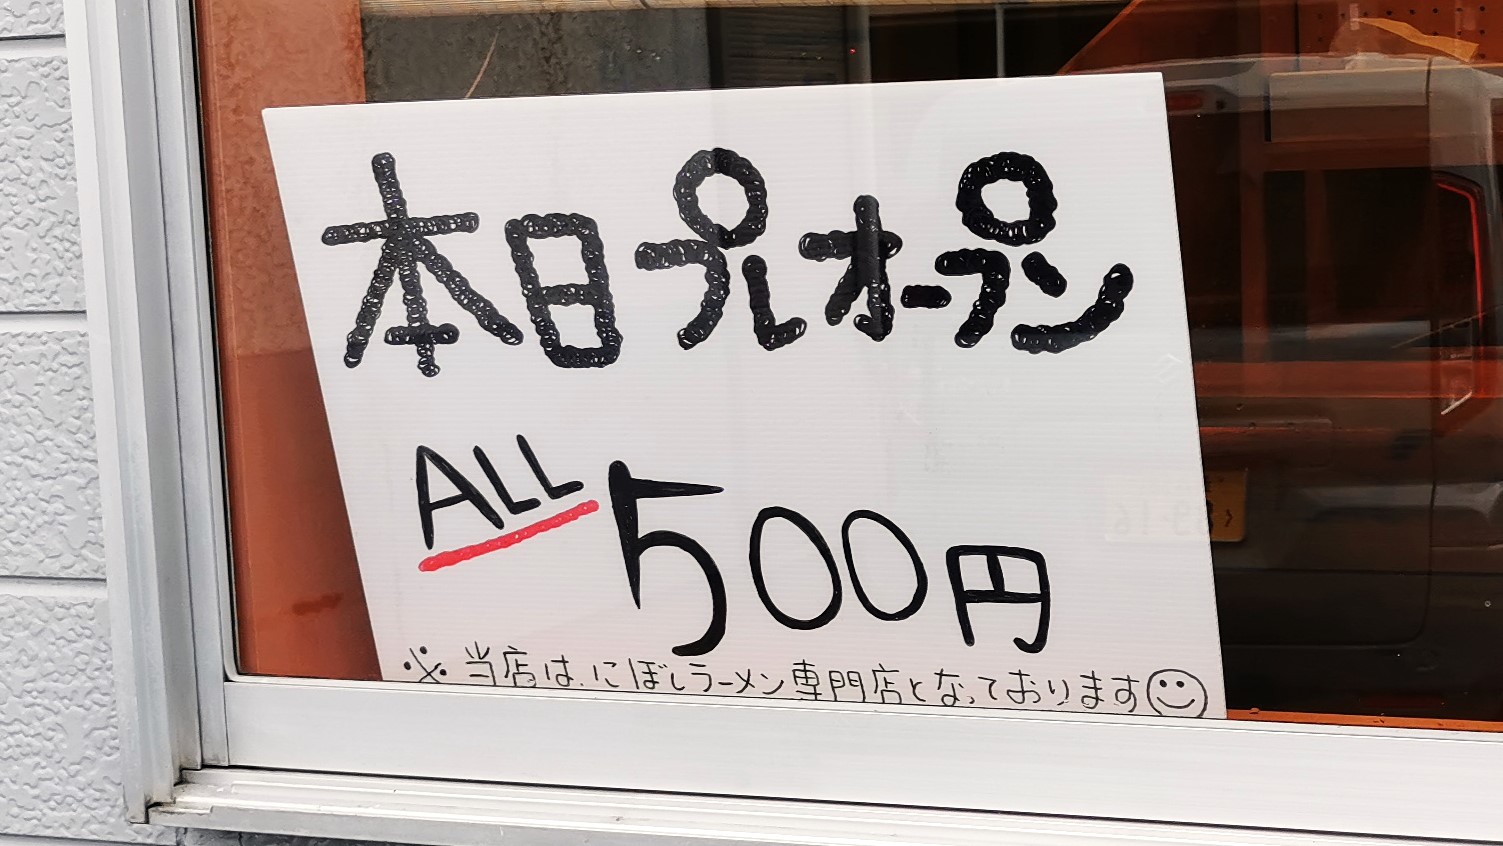 本日プレオープン
ALL 500円
※当店は、にぼしラーメン専門店となっております